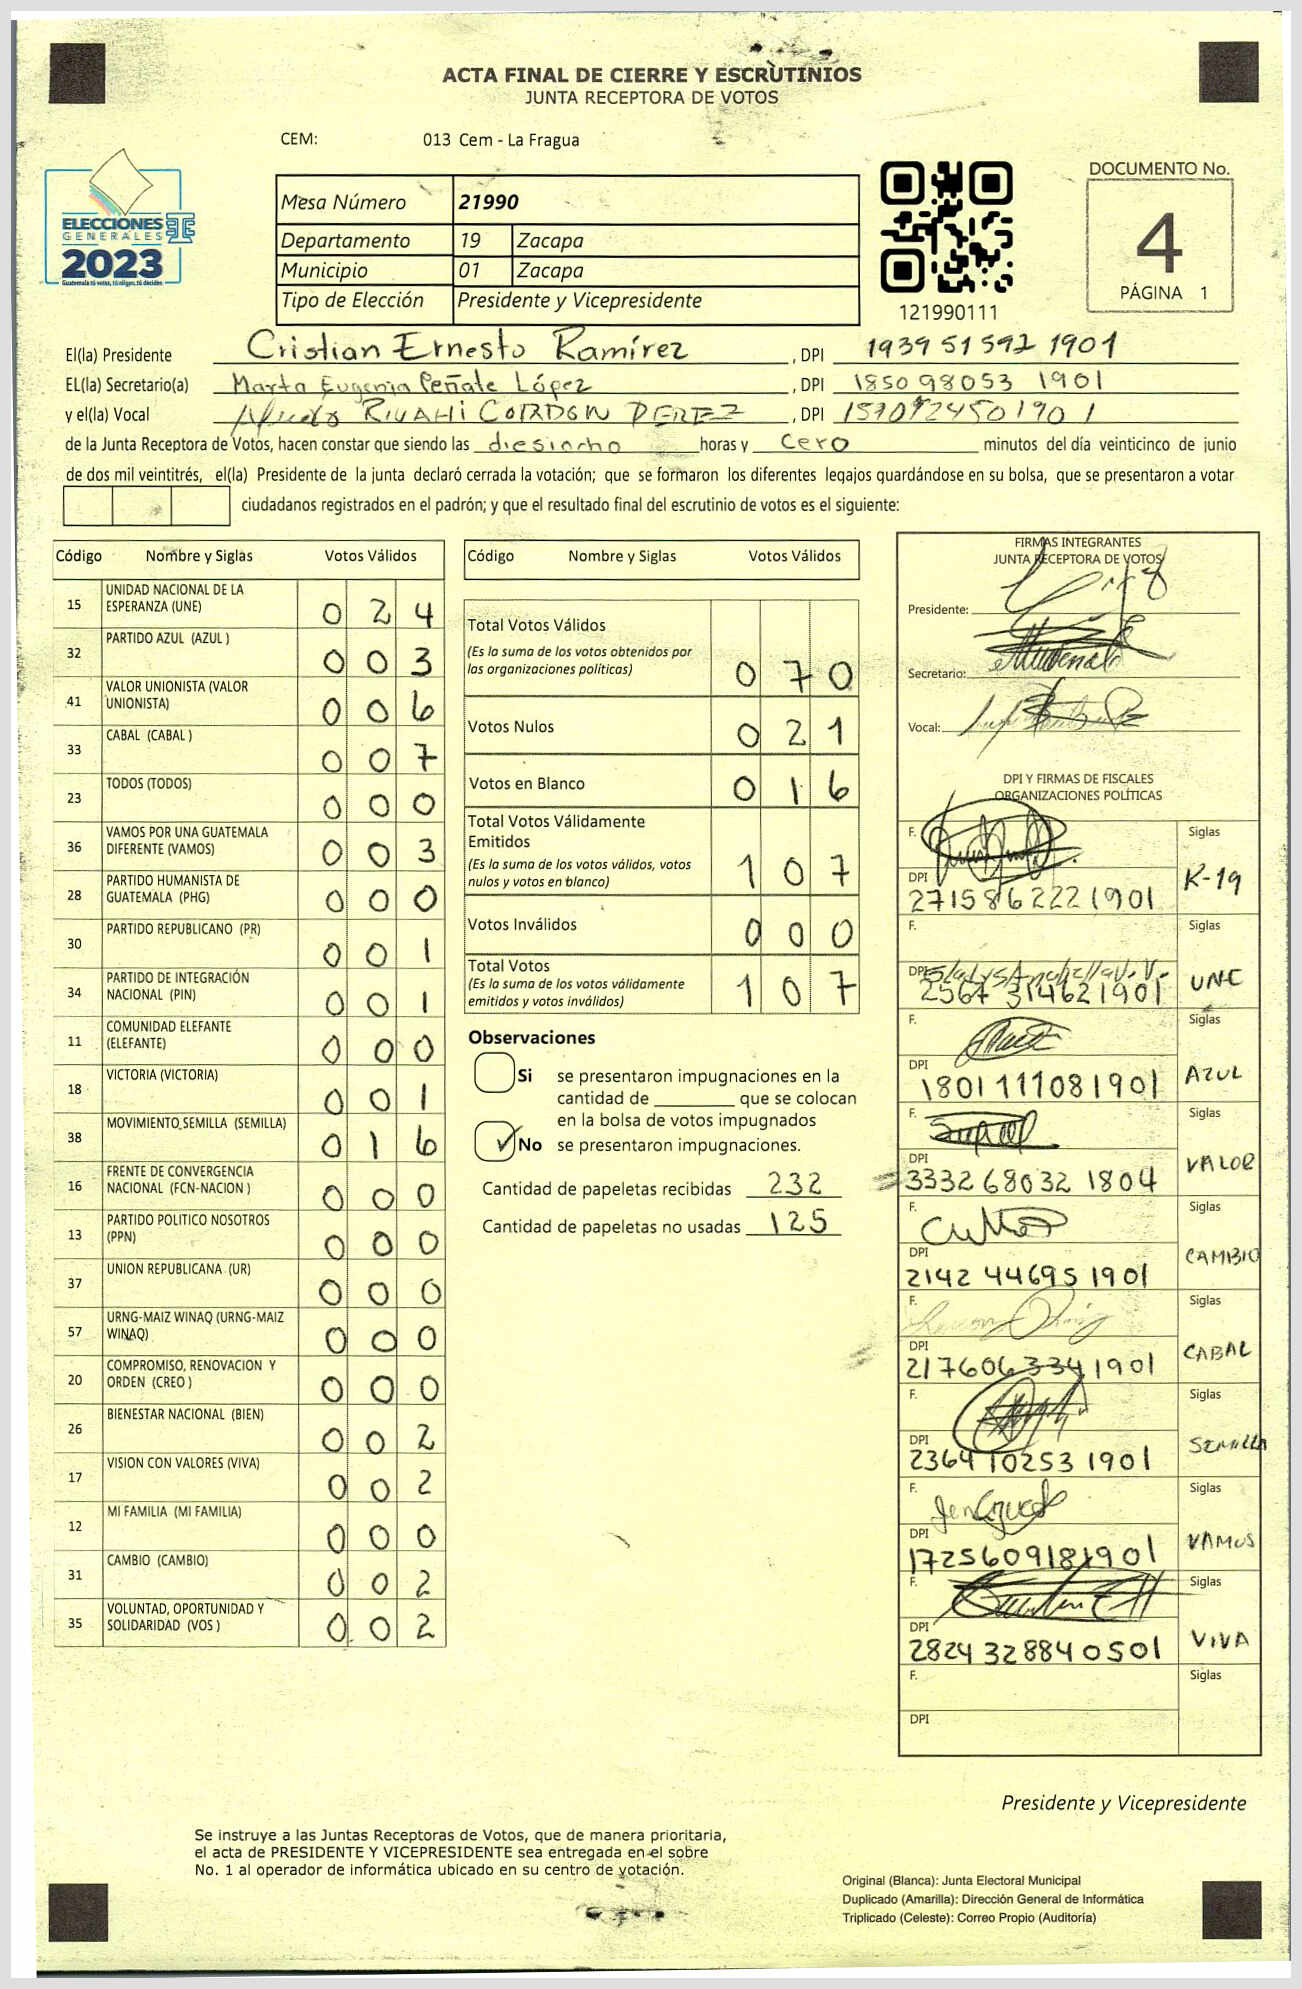 ACTA FINAL DE CIERRE Y ESCRUTINIOS
JUNTA RECEPTORA DE VOTOS
CEM: 013 Cem - La Fragua
ELECCIONES
GENERALES
2023
Guatemala tú votas, tú eliges, tú decides
Mesa Número 21990
Departamento 19 Zacapa
Municipio 01 Zacapa
Tipo de Elección Presidente y Vicepresidente
121990111
DOCUMENTO No.
4
PÁGINA 1
El(la) Presidente Cristian Ernesto Ramírez, DPI 1939 51592 1901
EL(la) Secretario(a) Marta Eugenia Peñate López, DPI 1850 98053 1901
y el(la) Vocal CORDON PEREZ, DPI 1901
de la Junta Receptora de Votos, hacen constar que siendo las diesiocho horas y cero minutos del día veinticinco de junio
de dos mil veintitrés, el(la) Presidente de la junta declaró cerrada la votación; que se formaron los diferentes legajos guardándose en su bolsa, que se presentaron a votar
ciudadanos registrados en el padrón; y que el resultado final del escrutinio de votos es el siguiente:
Código Nombre y Siglas Votos Válidos
15 UNIDAD NACIONAL DE LA ESPERANZA (UNE) 0 2 4
32 PARTIDO AZUL (AZUL ) 0 0 3
41 VALOR UNIONISTA (VALOR UNIONISTA) 0 0 6
33 CABAL (CABAL ) 0 0 7
23 TODOS (TODOS) 0 0 0
36 VAMOS POR UNA GUATEMALA DIFERENTE (VAMOS) 0 0 3
28 PARTIDO HUMANISTA DE GUATEMALA (PHG) 0 0 0
30 PARTIDO REPUBLICANO (PR) 0 0 1
34 PARTIDO DE INTEGRACIÓN NACIONAL (PIN) 0 0 1
11 COMUNIDAD ELEFANTE (ELEFANTE) 0 0 0
18 VICTORIA (VICTORIA) 0 0 1
38 MOVIMIENTO SEMILLA (SEMILLA) 0 1 6
16 FRENTE DE CONVERGENCIA NACIONAL (FCN-NACION ) 0 0 0
13 PARTIDO POLITICO NOSOTROS (PPN) 0 0 0
37 UNION REPUBLICANA (UR) 0 0 0
57 URNG-MAIZ WINAQ (URNG-MAIZ WINAQ) 0 0 0
20 COMPROMISO, RENOVACION Y ORDEN (CREO ) 0 0 0
26 BIENESTAR NACIONAL (BIEN) 0 0 2
17 VISION CON VALORES (VIVA) 0 0 2
12 MI FAMILIA (MI FAMILIA) 0 0 0
31 CAMBIO (CAMBIO) 0 0 2
35 VOLUNTAD, OPORTUNIDAD Y SOLIDARIDAD (VOS ) 0 0 2
Código Nombre y Siglas Votos Válidos
Total Votos Válidos
(Es la suma de los votos obtenidos por
las organizaciones políticas) 0 7 0
Votos Nulos 0 2 1
Votos en Blanco 0 1 6
Total Votos Válidamente
Emitidos
(Es la suma de los votos válidos, votos
nulos y votos en blanco) 1 0 7
Votos Inválidos 0 0 0
Total Votos
(Es la suma de los votos válidamente
emitidos y votos inválidos) 1 0 7
Observaciones
Si se presentaron impugnaciones en la
cantidad de ________ que se colocan
en la bolsa de votos impugnados
No se presentaron impugnaciones.
Cantidad de papeletas recibidas 232
Cantidad de papeletas no usadas 125
FIRMAS INTEGRANTES
JUNTA RECEPTORA DE VOTOS
Presidente:
Secretario:
Vocal:
DPI Y FIRMAS DE FISCALES
ORGANIZACIONES POLÍTICAS
F. Siglas
DPI 2715 86222 1901 K-19
F. Siglas
DPI 2567 31462 1901 UNE
F. Siglas
DPI 1801 11108 1901 AZUL
F. Siglas
DPI 3332 68032 1804 VALOR
F. Siglas
DPI 2142 44695 1901 CAMBIO
F. Siglas
DPI 2176 06334 1901 CABAL
F. Siglas
DPI 2364 10253 1901 SEMILLA
F. Siglas
DPI 1725 60918 1901 VAMOS
F. Siglas
DPI 2824 32884 0501 VIVA
F. Siglas
DPI
Presidente y Vicepresidente
Se instruye a las Juntas Receptoras de Votos, que de manera prioritaria,
el acta de PRESIDENTE Y VICEPRESIDENTE sea entregada en el sobre
No. 1 al operador de informática ubicado en su centro de votación.
Original (Blanca): Junta Electoral Municipal
Duplicado (Amarilla): Dirección General de Informática
Triplicado (Celeste): Correo Propio (Auditoría)